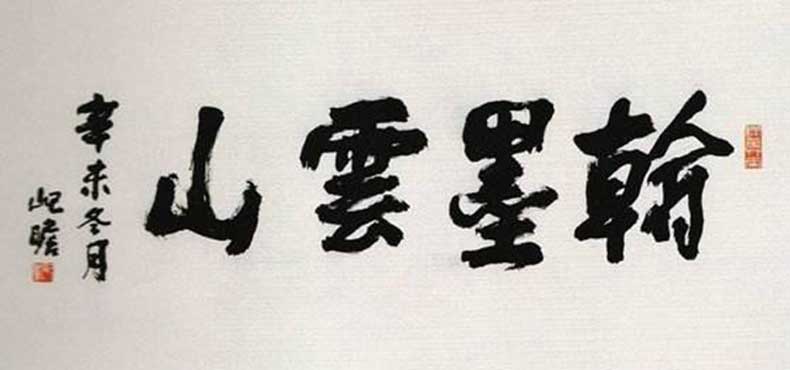 翰墨雲山
辛未冬月
屺瞻